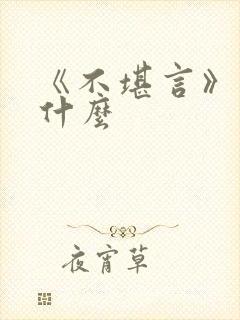 《不堪言》
什麼
夜宵草